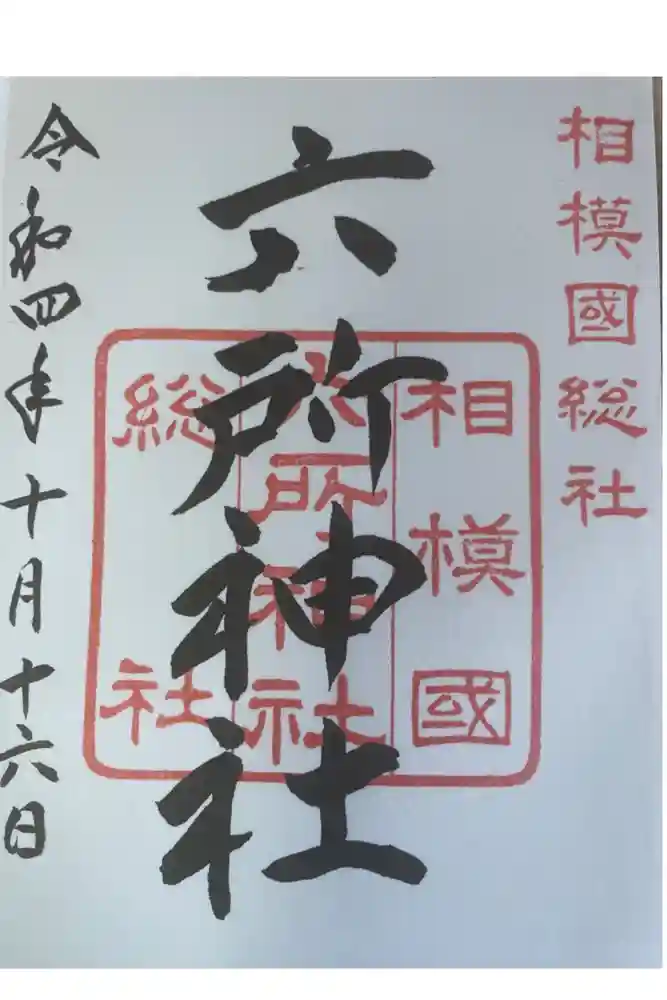 相模國総社
六所神社
相模國
六所神社
総社
令和四年十月十六日